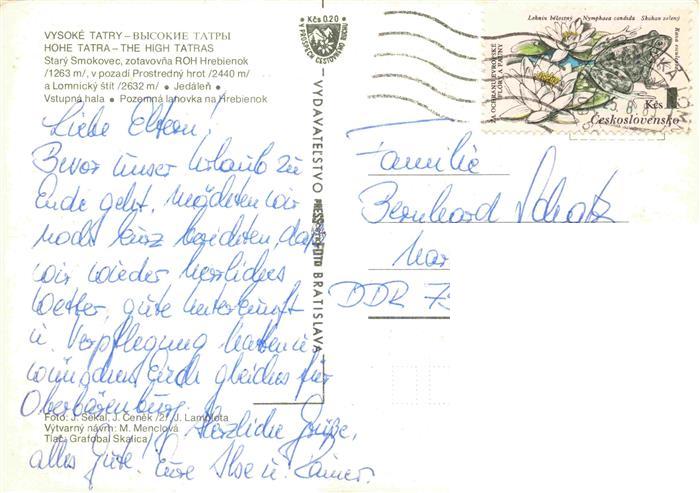 VYSOKÉ TATRY – ВЫСОКИЕ ТАТРЫ
HOHE TATRA – THE HIGH TATRAS
Starý Smokovec, zotavovňa ROH Hrebienok
/1263 m/, v pozadí Prostredný hrot /2440 m/
a Lomnický štít /2632 m/ • Jedáleň •
Vstupná hala • Pozemná lanovka na Hrebienok
Kčs 0,20
V PROSPECH CESTOVNÉHO RUCHU
VYDAVATEĽSTVO PRESSFOTO BRATISLAVA
Leknín bělostný Nymphaea candida Skokan zelený
Rana esculenta
ZA OCHRANU EVROPSKÉ
FLÓRY A FAUNY
Kčs 1
Československo
Liebe Eltern!
Bevor unser Urlaub zu
Ende geht, möchten wir
noch kurz berichten, daß
wir wieder herrliches
Wetter, gute Unterkunft
u. Verpflegung haben u.
wünschen Euch gleiches für
Oberbärenburg.
Herzliche Grüße,
alles Gute! Eure Ilse u. Rainer.
Familie
Bernhard Schatz
Mar
DDR 73
Foto: J. Sekal, J. Čeněk /2/, J. Lamplota
Výtvarný návrh: M. Menclová
Tlač: Grafobal Skalica